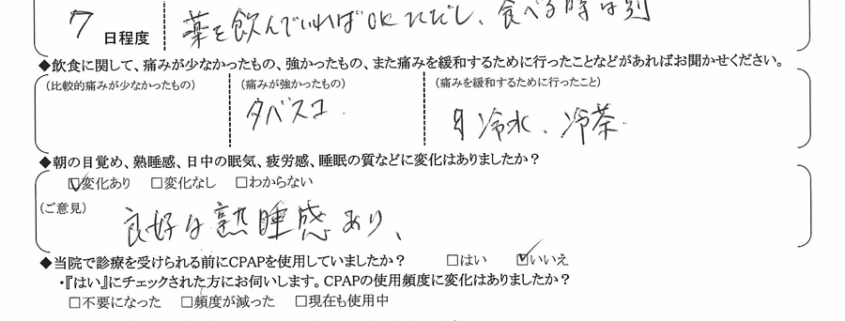 7 日程度 薬を飲んでいればOK ただし、食べる時は別
◆飲食に関して、痛みが少なかったもの、強かったもの、また痛みを緩和するために行ったことなどがあればお聞かせください。
(比較的痛みが少なかったもの) (痛みが強かったもの) (痛みを緩和するために行ったこと)
タバスコ. 冷水、冷茶.
◆朝の目覚め、熟睡感、日中の眠気、疲労感、睡眠の質などに変化はありましたか？
☑変化あり □変化なし □わからない
(ご意見) 良好な熟睡感あり、
◆当院で診療を受けられる前にCPAPを使用していましたか？ □はい ☑いいえ
・『はい』にチェックされた方にお伺いします。CPAPの使用頻度に変化はありましたか？
□不要になった □頻度が減った □現在も使用中